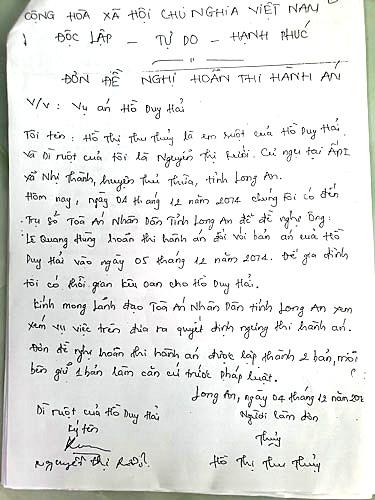 CỘNG HÒA XÃ HỘI CHỦ NGHĨA VIỆT NAM
ĐỘC LẬP - TỰ DO - HẠNH PHÚC
ĐƠN ĐỀ NGHỊ HOÃN THI HÀNH ÁN
V/v : Vụ án Hồ Duy Hải
Tôi tên : Hồ Thị Thu Thủy là em ruột của Hồ Duy Hải.
Và Dì ruột của tôi là Nguyễn Thị Rưởi. Cư ngụ tại ẤP 1
xã Nhị Thành, huyện Thủ Thừa, tỉnh Long An.
Hôm nay, ngày 04 tháng 12 năm 2014 chúng tôi có đến
Trụ Sở Toà Án Nhân Dân Tỉnh Long An để đề nghị Ông :
Lê Quang Hùng hoãn thi hành án đối với bản án của Hồ
Duy Hải vào ngày 05 tháng 12 năm 2014. Để gia đình
tôi có thời gian kêu oan cho Hồ Duy Hải.
Kính mong Lãnh đạo Toà Án Nhân Dân tỉnh Long An xem
xem vụ việc trên đưa ra quyết định ngừng thi hành án.
Đơn đề nghị hoãn thi hành án được lập thành 2 bản, mỗi
bên giữ 1 bản làm căn cứ trước pháp luật.
Long An, ngày 04 tháng 12 năm
Dì ruột của Hồ Duy Hải
Người làm đơn
ký tên
Thủy
Nguyễn Thị
Hồ Thị Thu Thủy